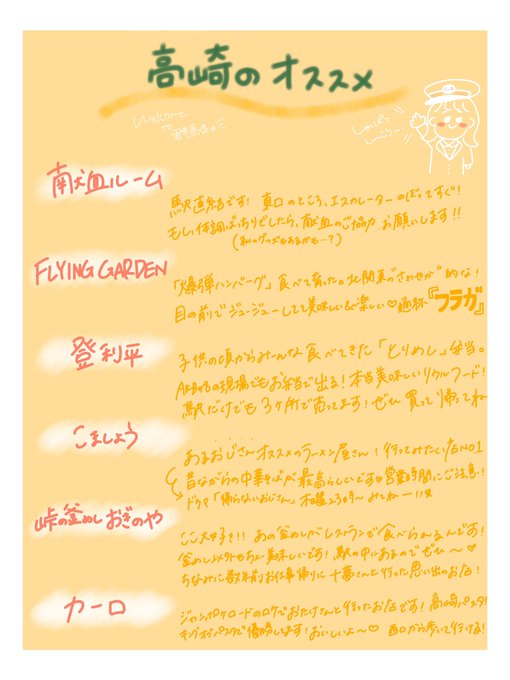 高崎のオススメ
Welcome
TO
群馬県
しゅっぱつ
しんこう〜!
献血ルーム
駅直結です! 東口のところ、エスカレーターのぼってすぐ!
もし、体調ばっちりでしたら、献血のご協力お願いします!!
(私のグッズもあるかも〜?)
FLYING GARDEN
「爆弾ハンバーグ」食べて育った。北関東の"さわやか"的な!
目の前でジュージューしてて美味しい&楽しい♡通称『フラガ』
登利平
子供の頃からみーんな食べてきた「とりめし」弁当。
AKB48の現場でもお弁当で出る!本当美味しいソウルフード!
駅だけでも3ヶ所で売ってます!ぜひ買って帰ってね
こましょう
あるおじさんオススメのラーメン屋さん!行ってみたい店NO1
昔ながらの中華そばが最高らしいです♡営業時間にご注意!
ドラマ「帰らないおじさん」木曜23時〜みてねー!!
峠の釜めし おぎのや
ここ大好き!! あの釜めしがレストランで食べられるんです!
釜めし以外もホントに美味しいです!駅の中にあるのでぜひ〜♡
ちなみに数年前お仕事帰りに十夢さんと行った思い出のお店!
カーロ
ジャンポケロードのロケでおたけさんと行ったお店です!高崎パスタ!
キングオブパスタで優勝してます!おいしいよ〜♡ 西口から歩いて行ける!